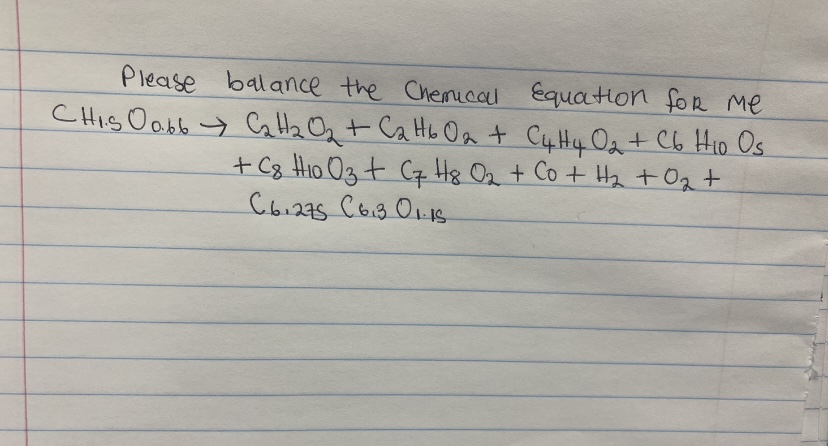 Please balance the Chemical Equation for me
CH1.5O0.66 → C2H2O2 + C2H6O2 + C4H4O2 + C6H10O5
+ C8H10O3 + C7H8O2 + Co + H2 + O2 +
C6.275 C6.3 O1.15